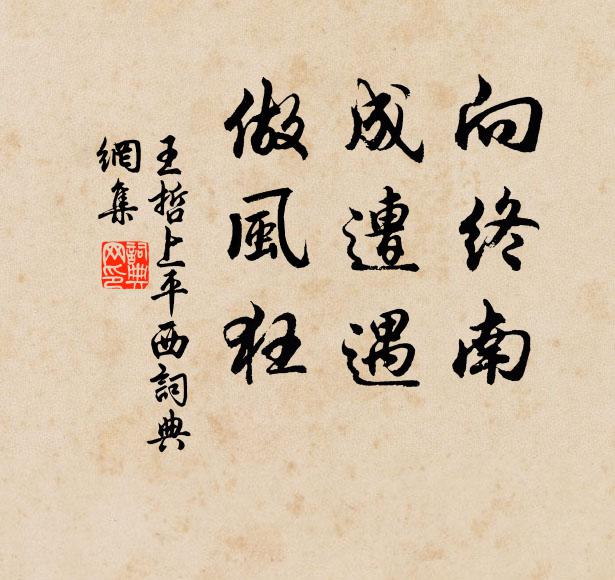 向终南
成遭遇
做風狂
王哲上平西詞典
網集
詞典
网印